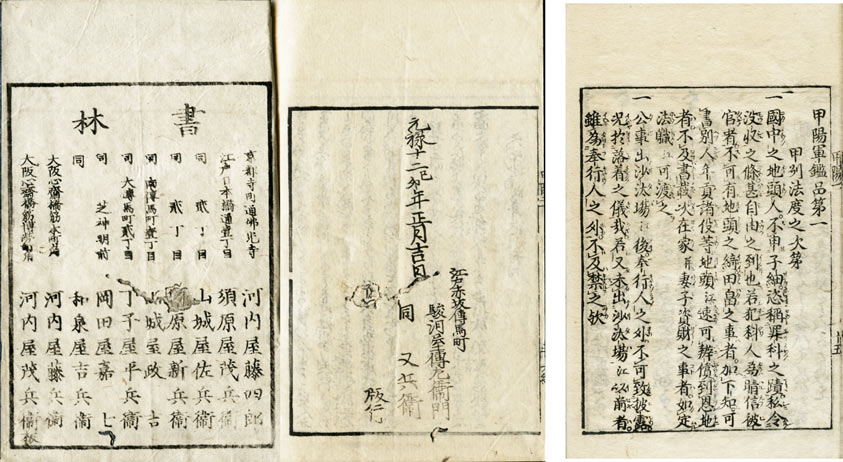 甲陽軍鑑品第一
甲州法度之次第
一國中之地頭人不申子細恣稱罪科之蹟私令
沒収之條甚自由之到也若犯科人為晴信被
官者不可有地頭之綺田畠之事者加下知可
書別人年貢諸役等地頭江速可辨償到恩地
者不及書載次在家并妻子資財之事者如定
法職江可渡之
一公事出沙汰場之後奉行人之外不可致披露
況於落着之儀哉若又未出沙汰場江以前者
雖為奉行人之外不及禁之欤
元禄十二己卯年正月吉日
江戸赤坂傳馬町
駿河屋傳左衛門
同 又兵衛
版行
書林
京都寺町通佛光寺 河内屋藤四郎
江戸日本橋通壹丁目 須原屋茂兵衛
同 貳丁目 山城屋佐兵衛
同 貳丁目 原屋新兵衛
同 南傳馬町壹丁目 山城屋政吉
同 大傳馬町貳丁目 丁子屋平兵衛
同 芝神明前 岡田屋嘉七
同 和泉屋吉兵衛
大阪心齋橋筋 河内屋藤兵衛
大阪心齋橋筋博労町角 河内屋茂兵衛板